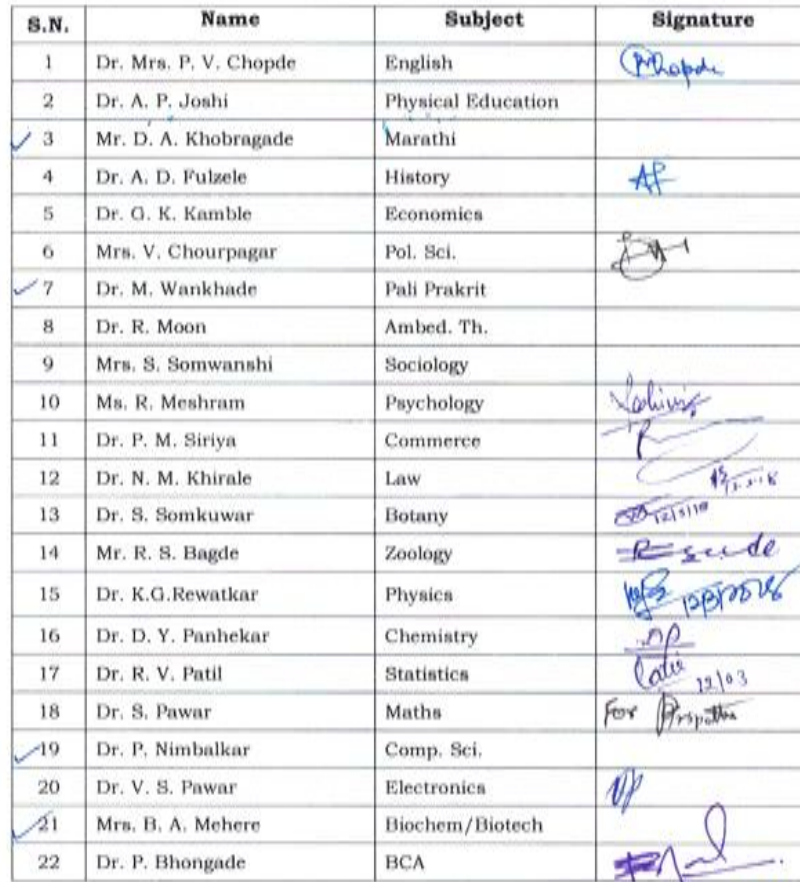 S.N. Name Subject Signature
1 Dr. Mrs. P. V. Chopde English
2 Dr. A. P. Joshi Physical Education
3 Mr. D. A. Khobragade Marathi
4 Dr. A. D. Fulzele History
5 Dr. G. K. Kamble Economics
6 Mrs. V. Chourpagar Pol. Sci.
7 Dr. M. Wankhade Pali Prakrit
8 Dr. R. Moon Ambed. Th.
9 Mrs. S. Somwanshi Sociology
10 Ms. R. Meshram Psychology
11 Dr. P. M. Siriya Commerce
12 Dr. N. M. Khirale Law
13 Dr. S. Somkuwar Botany
14 Mr. R. S. Bagde Zoology
15 Dr. K.G.Rewatkar Physics
16 Dr. D. Y. Panhekar Chemistry
17 Dr. R. V. Patil Statistics 12/03
18 Dr. S. Pawar Maths For
19 Dr. P. Nimbalkar Comp. Sci.
20 Dr. V. S. Pawar Electronics
21 Mrs. B. A. Mehere Biochem/Biotech
22 Dr. P. Bhongade BCA